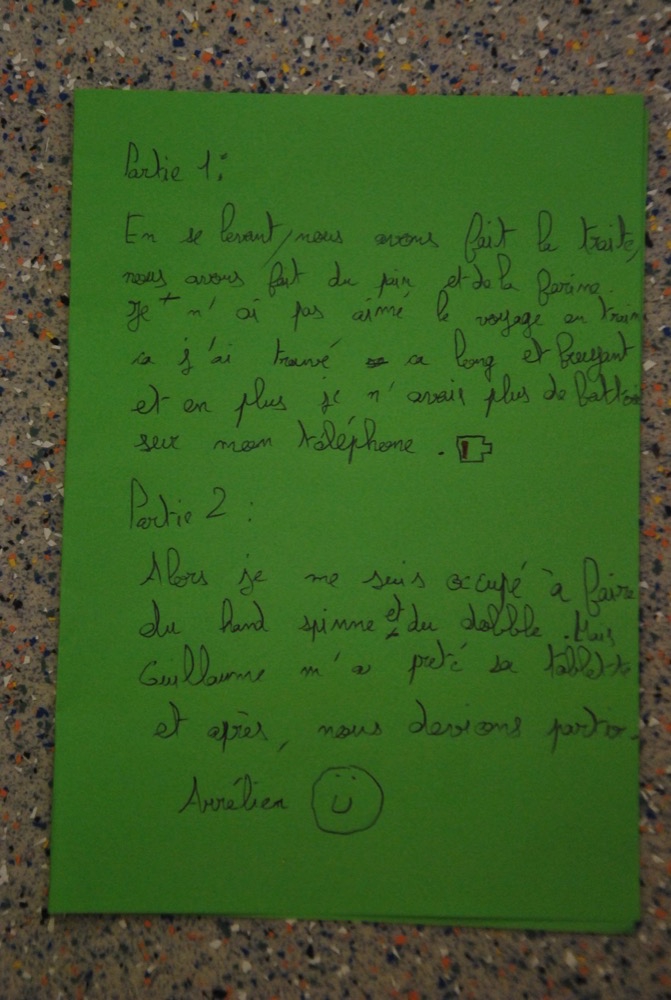 Partie 1:
En se levant, nous avons fait la traite,
nous avons fait du pain et de la farine.
Je n'ai pas aimé le voyage en train
ca j'ai trouvé ca long et bruyant
et en plus je n'avais plus de batterie
sur mon téléphone.
Partie 2:
Alors je me suis occupé à faire
du hand spinne et du dobble. Mais
Guillaume m'a preté sa tablette
et après, nous devions partir.
Aurélien